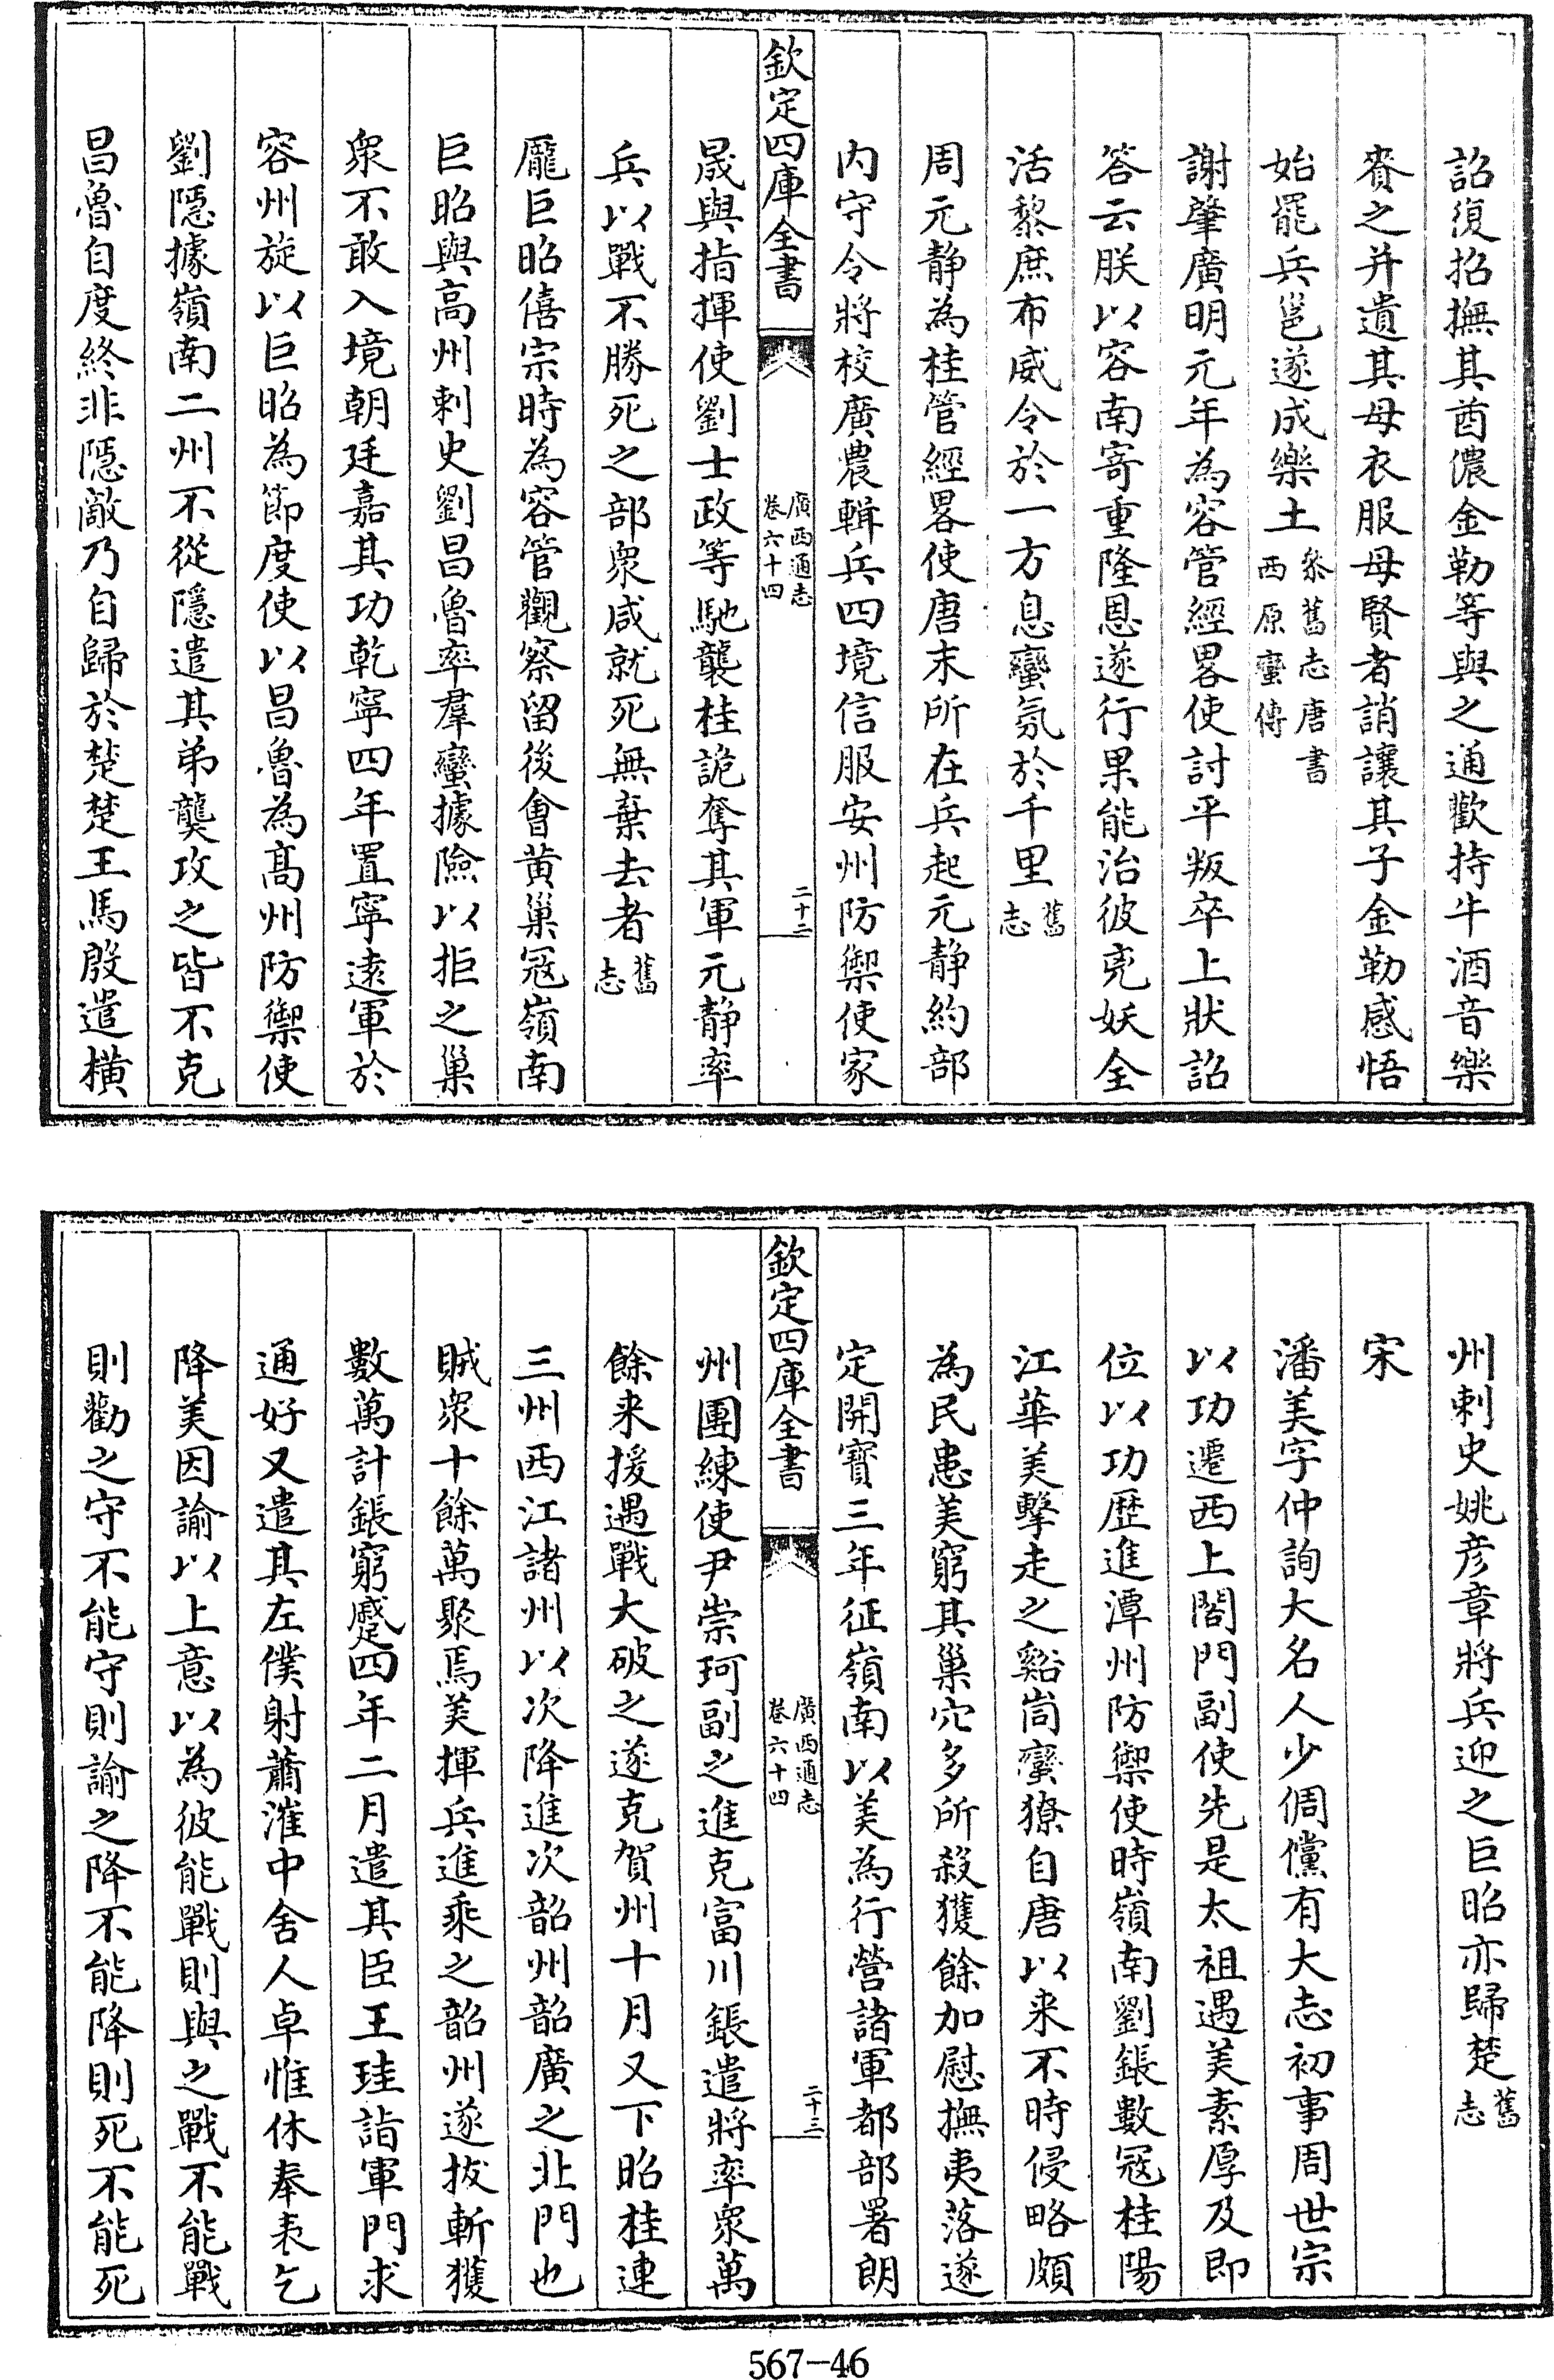 詔復招撫其酋儂金勒等與之通歡持牛酒音樂
賚之并遺其母衣服母賢者誚讓其子金勒感悟
始罷兵邕遂成樂土叅舊志唐書西原蠻傳
謝肇廣明元年為容管經畧使討平叛卒上狀詔
答云朕以容南寄重隆恩遂行果能治彼兇妖全
活黎庶布威令於一方息蠻氛於千里舊志
周元静為桂管經畧使唐末所在兵起元静約部
内守令將校廣農輯兵四境信服安州防禦使家
欽定四庫全書
廣西通志
卷六十四
二十二
晟與指揮使劉士政等馳襲桂詭奪其軍元静率
兵以戰不勝死之部衆咸就死無棄去者舊志
龐巨昭僖宗時為容管觀察留後會黄巢冦嶺南
巨昭與高州刺史劉昌魯率羣蠻據險以拒之巢
衆不敢入境朝廷嘉其功乾寧四年置寧逺軍於
容州旋以巨昭為節度使以昌魯為髙州防禦使
劉隱據嶺南二州不從隱遣其弟龑攻之皆不克
昌魯自度終非隱敵乃自歸於楚楚王馬殷遣橫
州刺史姚彦章將兵迎之巨昭亦歸楚舊志
宋
潘美字仲詢大名人少倜儻有大志初事周世宗
以功遷西上閤門副使先是太祖遇美素厚及即
位以功歷進潭州防禦使時嶺南劉鋹數冦桂陽
江華美擊走之谿峝蠻獠自唐以来不時侵略頗
為民患美窮其巢穴多所殺獲餘加慰撫夷落遂
定開寳三年征嶺南以美為行營諸軍都部署朗
欽定四庫全書
廣西通志
卷六十四
二十三
州團練使尹崇珂副之進克富川鋹遣將率衆萬
餘来援遇戰大破之遂克賀州十月又下昭桂連
三州西江諸州以次降進次韶州韶廣之北門也
賊衆十餘萬聚焉美揮兵進乘之韶州遂拔斬獲
數萬計鋹窮蹙四年二月遣其臣王珪詣軍門求
通好又遣其左僕射蕭漼中舍人卓惟休奉表乞
降美因諭以上意以為彼能戰則與之戰不能戰
則勸之守不能守則諭之降不能降則死不能死
567-46